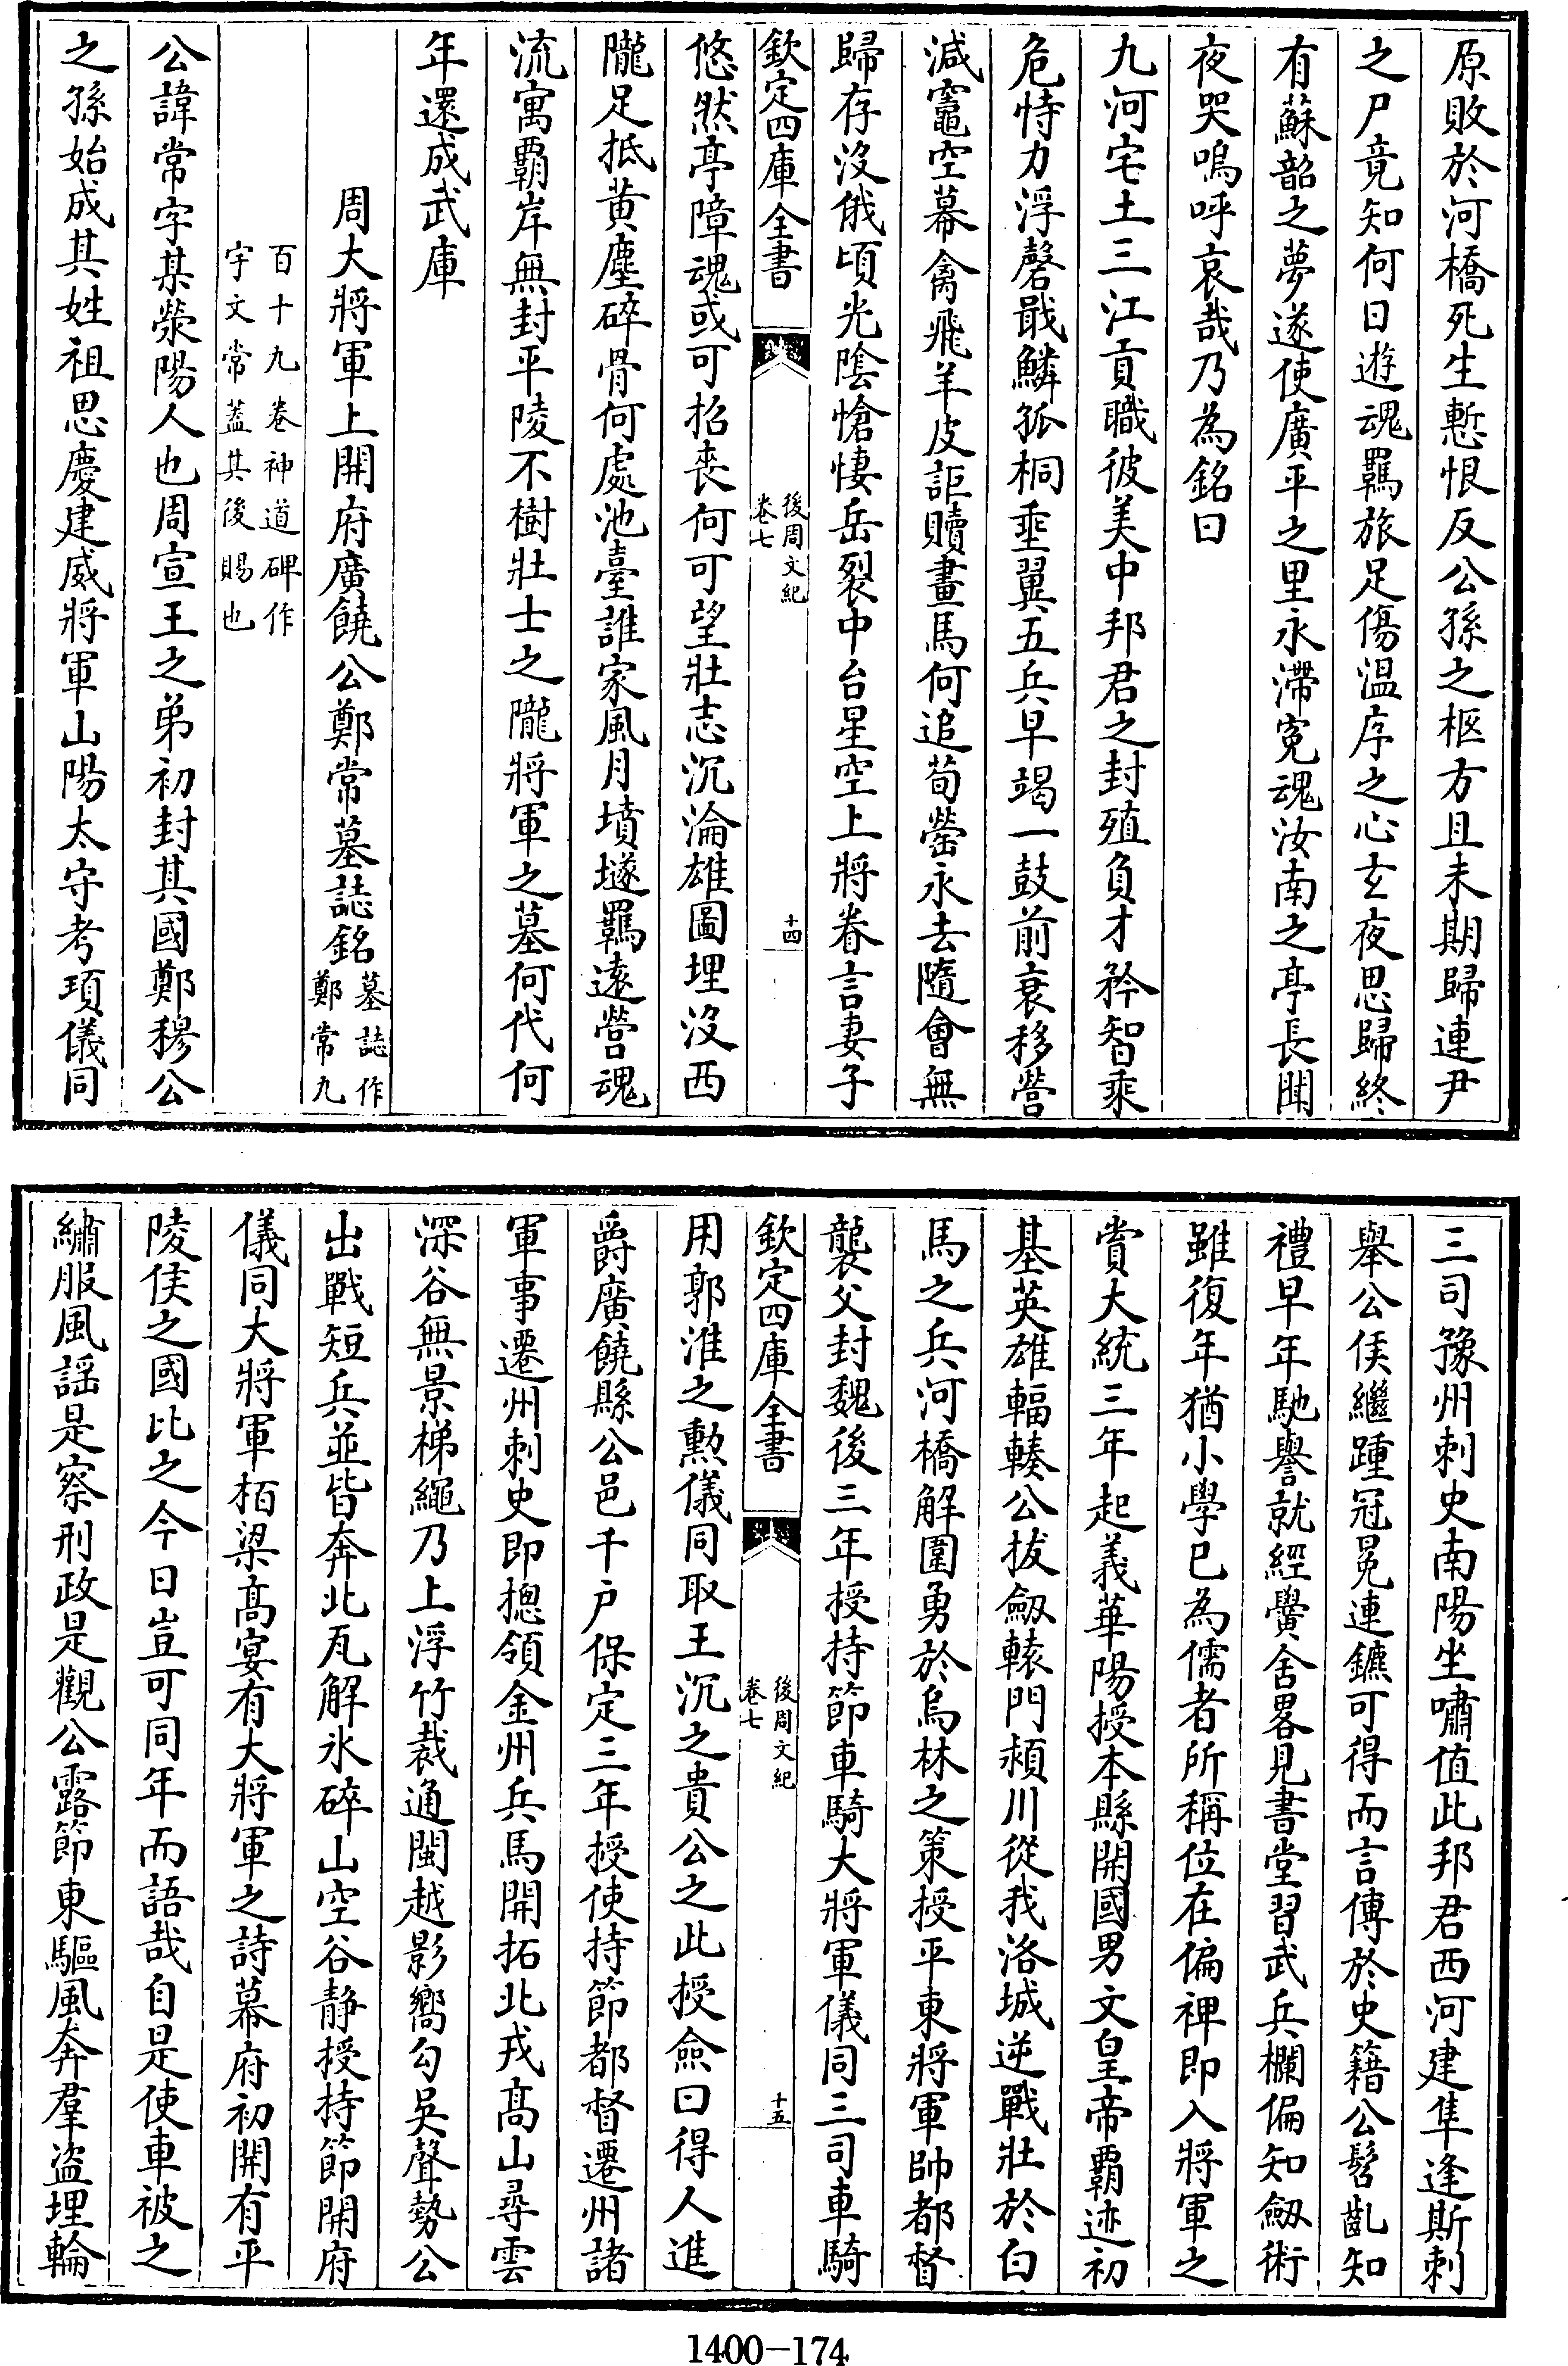 原敗於河橋死生慙恨反公孫之柩方且未期歸連尹
之尸竟知何日遊魂羈旅足傷温序之心玄夜思歸終
有蘇韶之夢遂使廣平之里永滯寃魂汝南之亭長聞
夜哭嗚呼哀哉乃為銘曰
九河宅土三江貢職彼美中邦君之封殖負才矜智乘
危恃力浮磬戢鱗孤桐垂翼五兵早竭一鼓前衰移營
減竈空幕禽飛羊皮詎贖畫馬何追荀罃永去隨會無
歸存没俄頃光陰愴悽岳裂中台星空上將眷言妻子
欽定四庫全書
後周文紀
卷七
十四
悠然亭障魂或可招喪何可望壯志沉淪雄圖埋没西
隴足抵黄塵碎骨何處池臺誰家風月墳墟羈遠營魂
流寓覇岸無封平陵不樹壯士之隴將軍之墓何代何
年還成武庫
周大將軍上開府廣饒公鄭常墓誌銘
墓誌作
鄭常九
百十九卷神道碑作
宇文常蓋其後賜也
公諱常字某滎陽人也周宣王之弟初封其國鄭穆公
之孫始成其姓祖思慶建威將軍山陽太守考項儀同
三司豫州刺史南陽坐嘯值此邦君西河建隼逢斯刺
舉公侯繼踵冠冕連鑣可得而言傳於史籍公髫齓知
禮早年馳譽就經黌舍畧見書堂習武兵欄偏知劔術
雖復年猶小學已為儒者所稱位在偏裨即入將軍之
賞大統三年起義華陽授本縣開國男文皇帝覇迹初
基英雄輻輳公拔劔轅門潁川從我洛城逆戰壯於白
馬之兵河橋解圍勇於烏林之策授平東將軍帥都督
襲父封魏後三年授持節車騎大將軍儀同三司車騎
欽定四庫全書
後周文紀
卷七
十五
用郭淮之勲儀同取王沉之貴公之此授僉曰得人進
爵廣饒縣公邑千户保定三年授使持節都督遷州諸
軍事遷州刺史即摠領金州兵馬開拓北戎高山尋雲
深谷無景梯繩乃上浮竹裁通閩越影嚮勾吳聲勢公
出戰短兵並皆奔北瓦解氷碎山空谷静授持節開府
儀同大將軍栢梁高宴有大將軍之詩幕府初開有平
陵侯之國比之今日豈可同年而語哉自是使車被之
繡服風謡是察刑政是觀公露節東驅風奔羣盜埋輪
1400-174